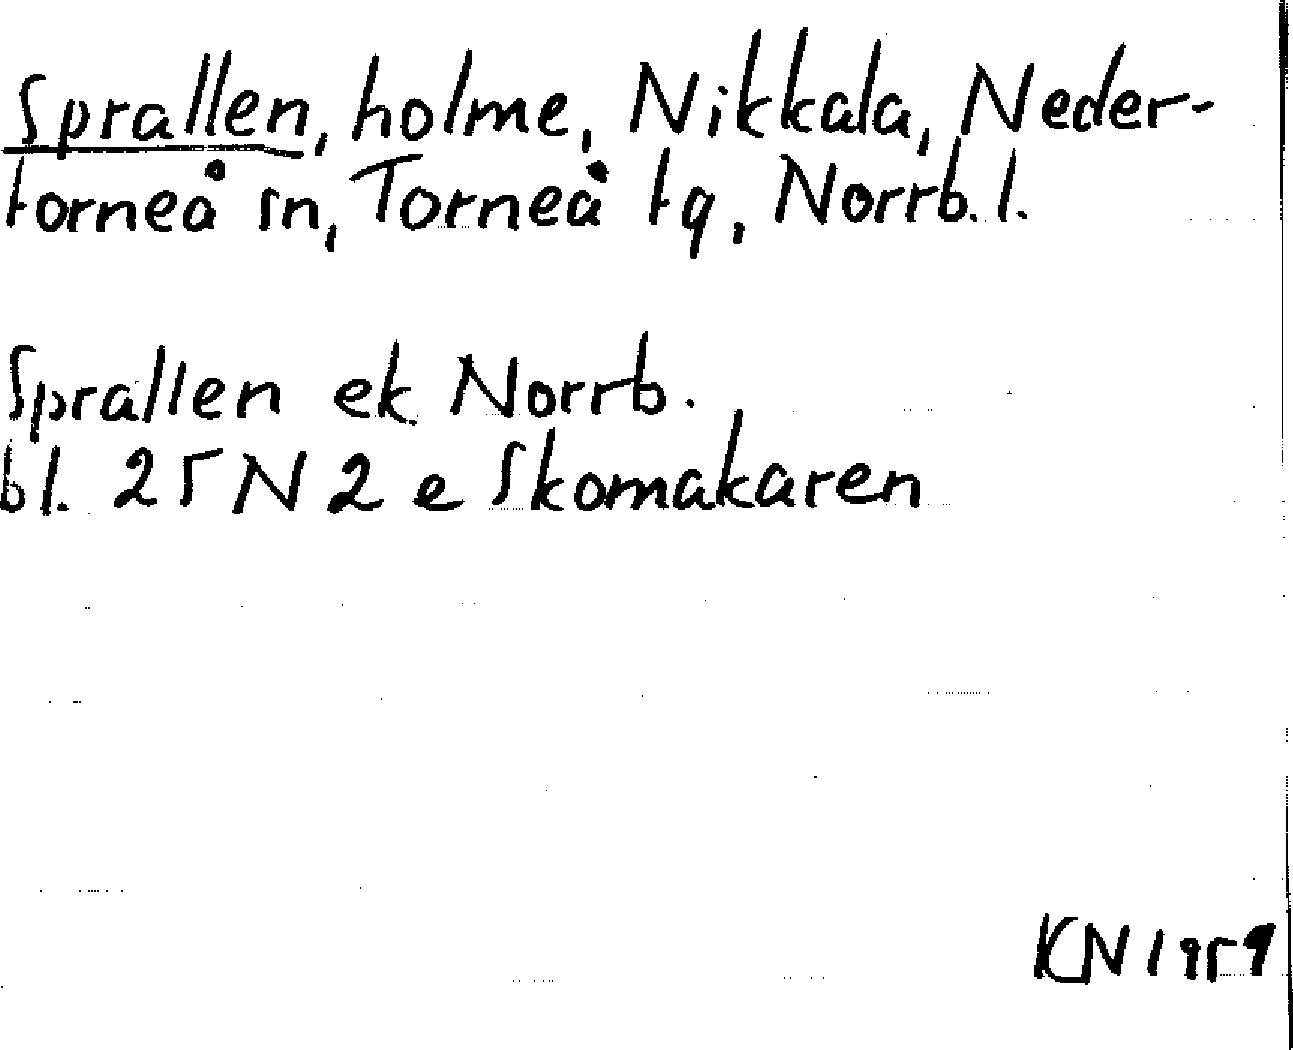 Sprallen, holme, Nikkala, Neder-
torneå sn, Torneå tg, Norrb. l.
Sprallen ek Norrb.
bl. 25 N 2 e Skomakaren
KN 1959